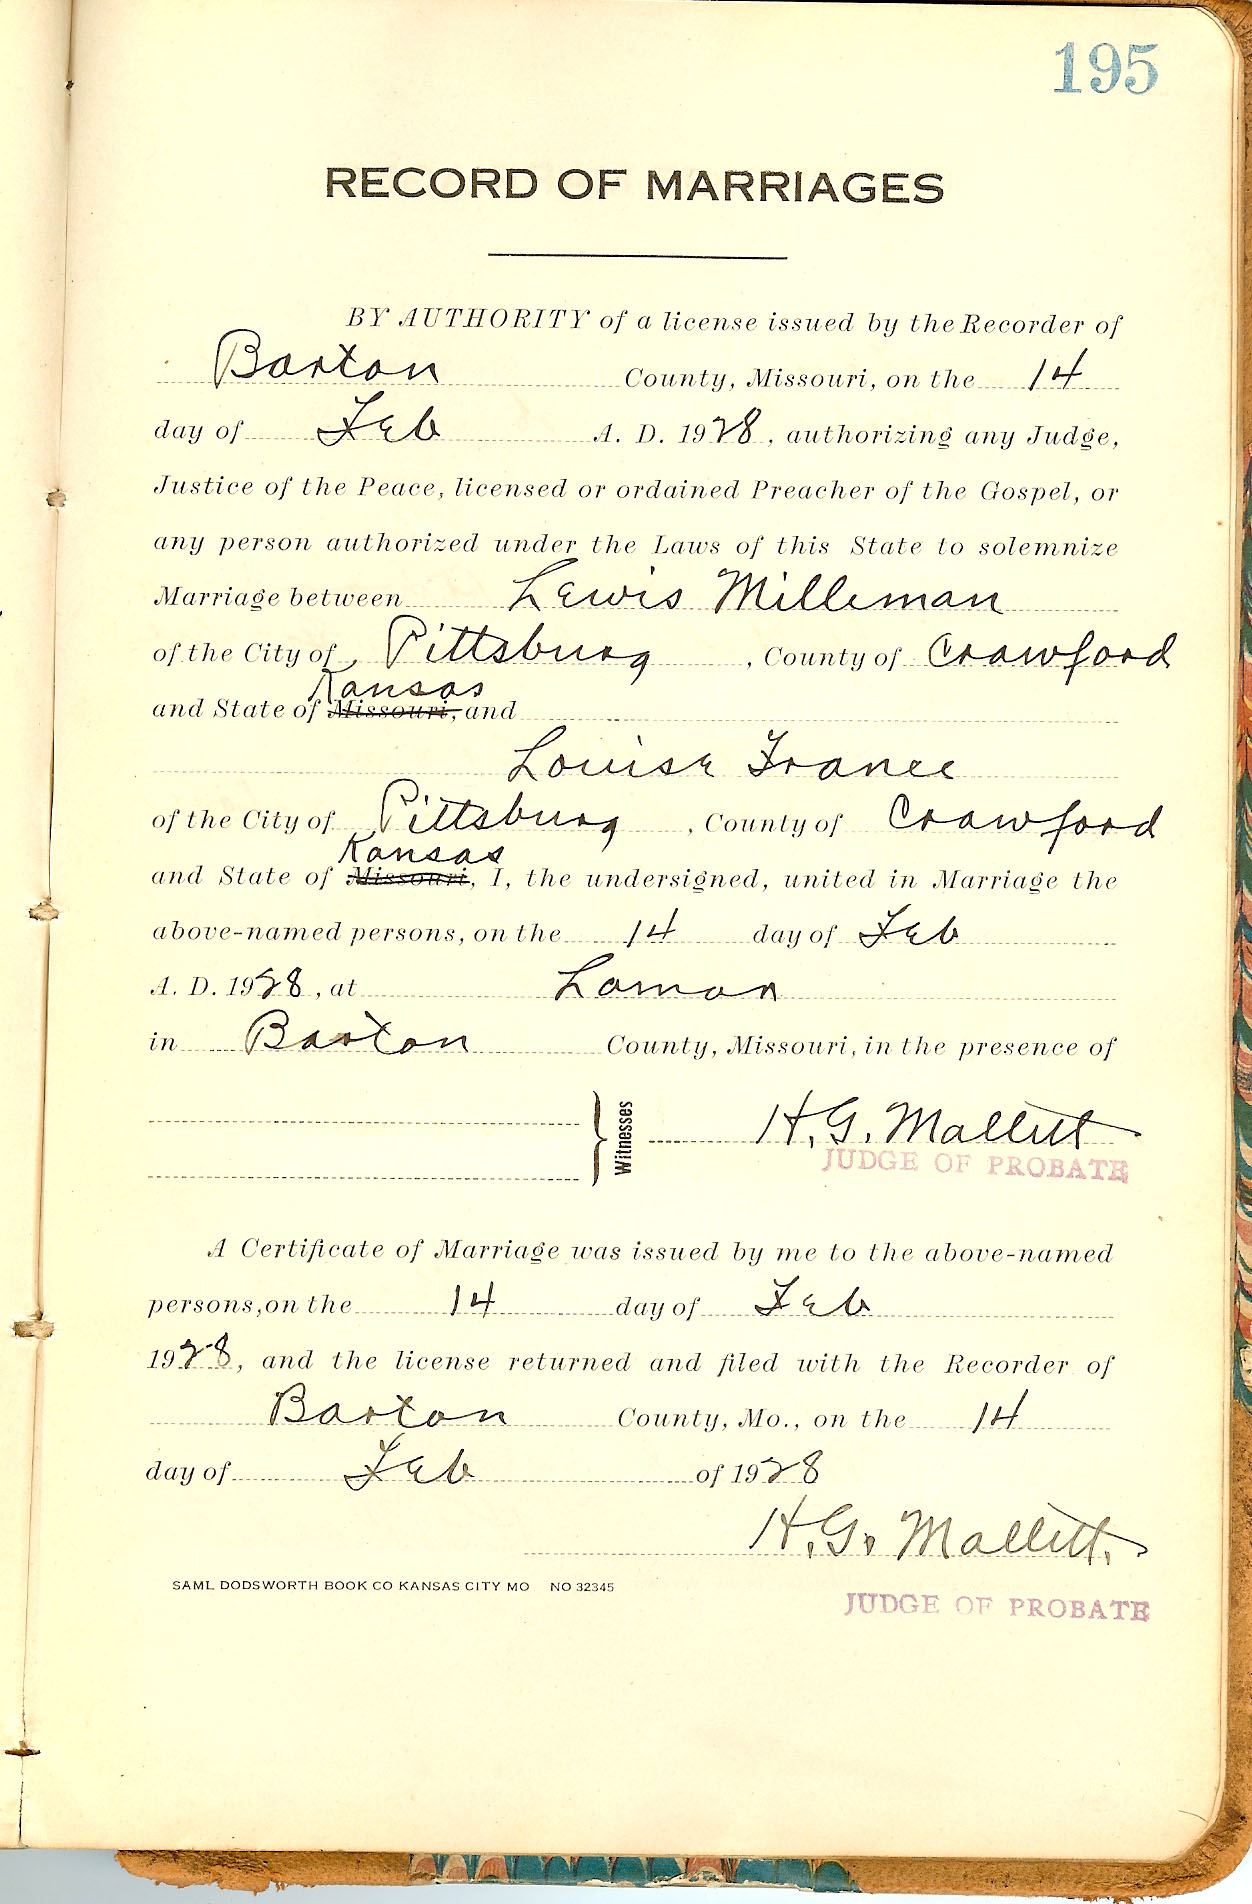 195
RECORD OF MARRIAGES
BY AUTHORITY of a license issued by the Recorder of
Barton County, Missouri, on the 14
day of Feb A. D. 1928, authorizing any Judge,
Justice of the Peace, licensed or ordained Preacher of the Gospel, or
any person authorized under the Laws of this State to solemnize
Marriage between Lewis Milleman
of the City of Pittsburg, County of Crawford
Kansas
and State of Missouri, and
Louise France
of the City of Pittsburg, County of Crawford
Kansas
and State of Missouri, I, the undersigned, united in Marriage the
above-named persons, on the 14 day of Feb
A. D. 1928, at Lamar
in Barton County, Missouri, in the presence of
Witnesses H. G. Mallett
JUDGE OF PROBATE
A Certificate of Marriage was issued by me to the above-named
persons, on the 14 day of Feb
1928, and the license returned and filed with the Recorder of
Barton County, Mo., on the 14
day of Feb of 1928
H. G. Mallett.
SAML DODSWORTH BOOK CO KANSAS CITY MO NO 32345
JUDGE OF PROBATE